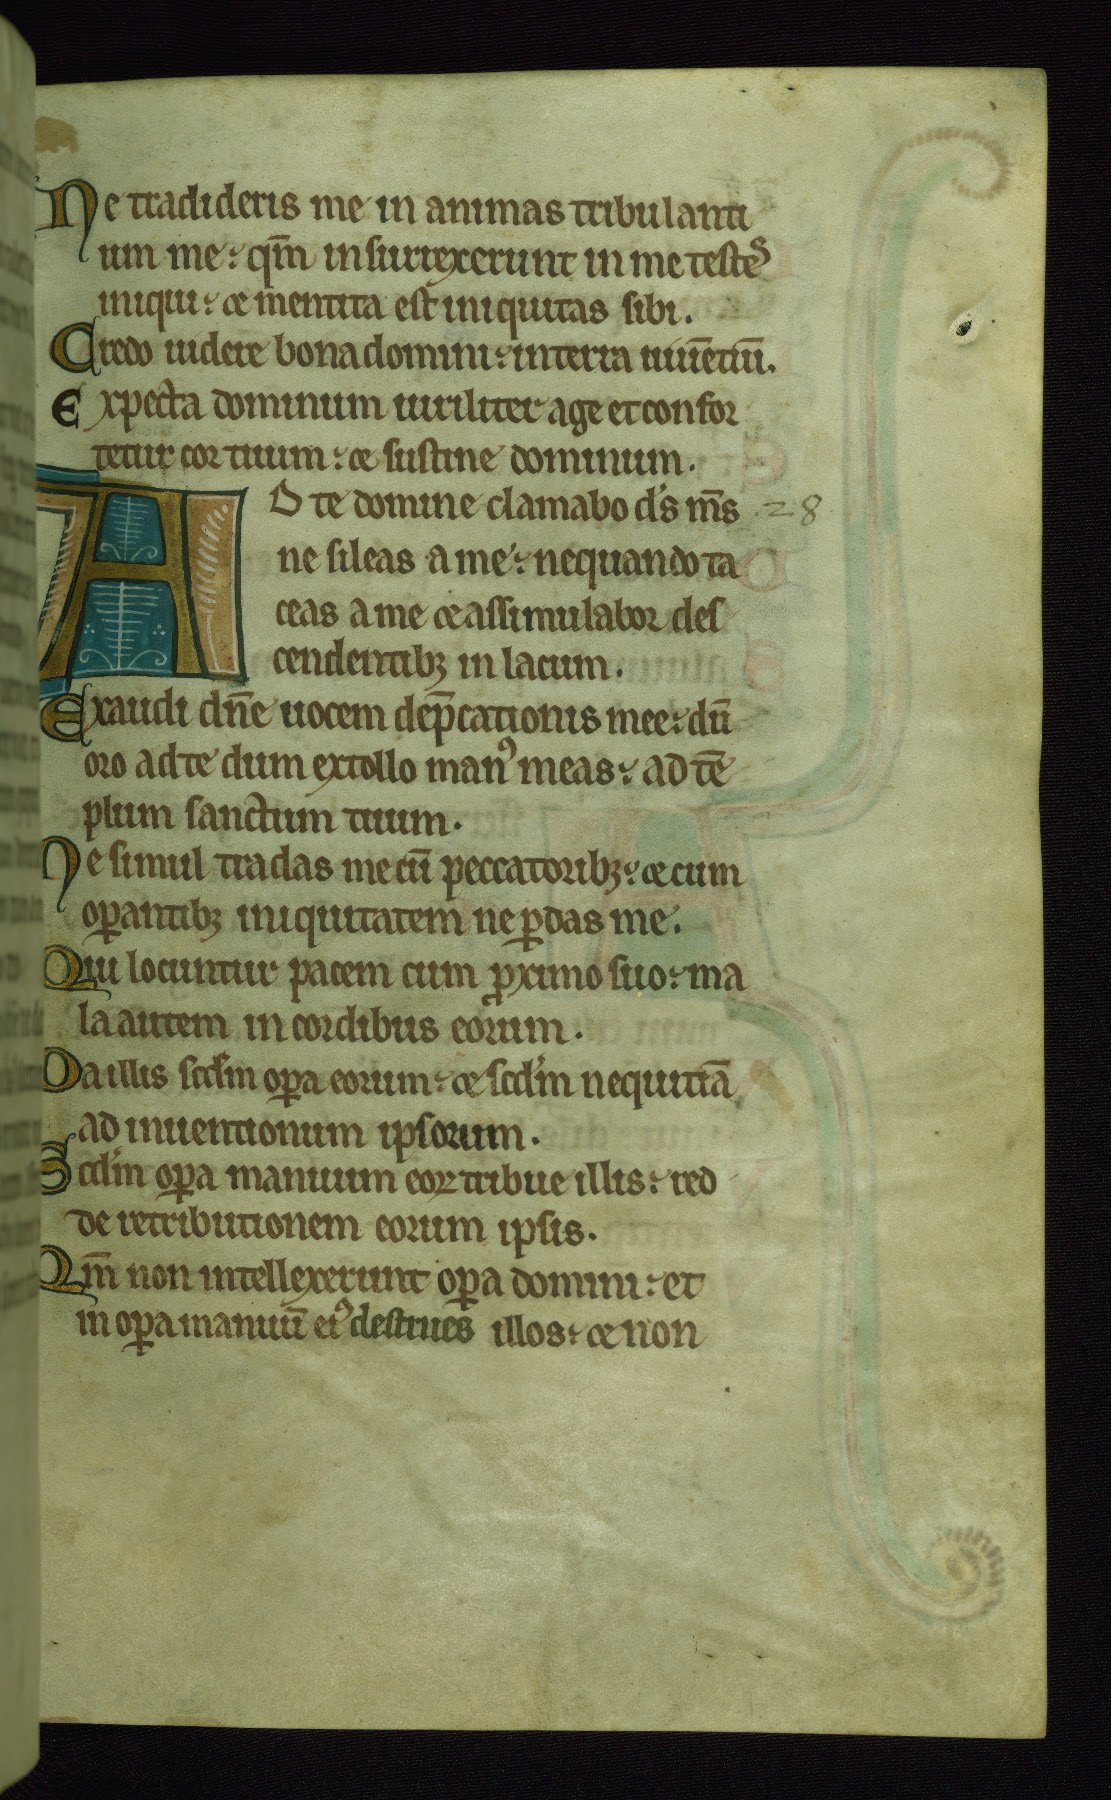 Ne tradideris me in animas tribulanti
um me : qm̄ insurrexerunt in me testes
iniqui : ⁊ mentita est iniquitas sibi.
Credo uidere bona domini : in terra uiuētiū.
Expecta dominum uiriliter age et confor
tetur cor tuum : ⁊ sustine dominum.
AD te domine clamabo d̄s m̄s 28
ne sileas a me : nequando ta
ceas a me ⁊ assimulabor des
cendentibꝫ in lacum.
Exaudi dn̄e uocem dep̄cationis mee : dū
oro ad te dum extollo manꝰ meas : ad tē
plum sanctum tuum.
Ne simul tradas me cū peccatoribꝫ : ⁊ cum
oꝑantibꝫ iniquitatem ne ꝑdas me.
Qui locuntur pacem cum ꝓximo suo : ma
la autem in cordibus eorum.
Da illis scd̄m oꝑa eorum : ⁊ scd̄m nequitiā
ad inuentionum ipsorum.
Scd̄m oꝑa manuum eoꝝ tribue illis : red
de retributionem eorum ipsis.
Qm̄ non intellexerunt oꝑa domini : et
in oꝑa manuū eiꝰ destrues illos : ⁊ non